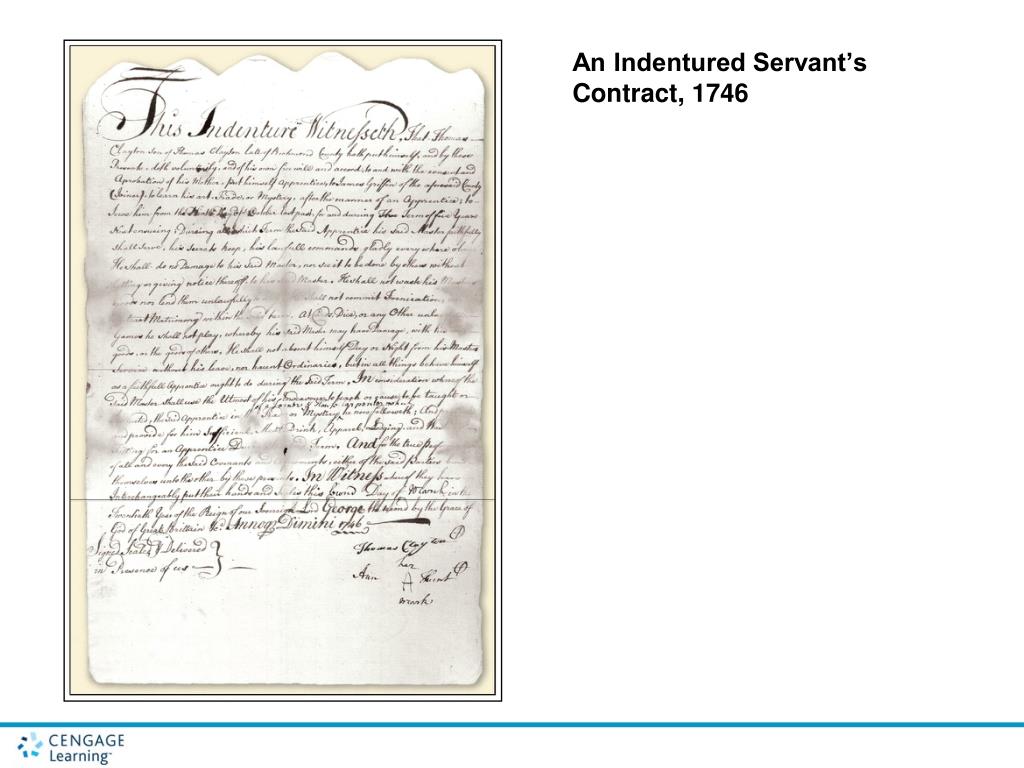 An Indentured Servant's
Contract, 1746
This Indenture Witnesseth, That Thomas
Clayton son of Thomas Clayton late of Richmond County hath put himself, and by these
Presents, doth voluntarily, and of his own free will and accord, and with the consent and
Aprobation of his Mother, Put himself Apprentice, to James Griffin of the aforesaid County
(Joiner) to learn his art, Trade, or Mystery, after the manner of an Apprentice; to
Serve him from the Day of October last past, for and during The Term of five Years
Next ensuing; During all which Term the said Apprentice his said Master faithfully
Shall Serve, his Secrets keep, his lawfull commands gladly every where
He shall do no Damage to his Said Master, nor see it to be done by others without
letting or giving notice thereoff, to his said Master. He shall not wast his
goods nor lend them unlawfully shall not commit Fornication,
Matrimony within the said term. At Cards, Dice, or any Other
Games he shall not play, whereby his said Master may have Damage, with his
goods, or the goods of others, He shall not absent himself Day or Night from his Masters
Service without his leave, nor haunt Ordinaries, but in all things behave himself
as a faithfull Apprentice ought to do during the said Term. In consideration whereof the
Said Master Shall use the Utmost of his Endeavours to teach or cause to be taught or
the said Apprentice in Trade or Mystery he now followeth; And
and provide for him Sufficient Meat Drink, Apparel, Lodging, and
fitting for an Apprentice Term, And for the true
of all and every the Said Covenants and either of the Said Parties
themselves unto the other by these presents. In Witness whereof they have
Interchangeably put their hands and this Day of March in the
Twentieth Year of the Reign of our Sovereign Lord George the second by the Grace of
God of Great Brittain &c. Annoq Dimini 1746
Signed Sealed & Delivered
in Presence of us
Thomas Clayton
her
Ann A Hunt
mark
CENGAGE
Learning™